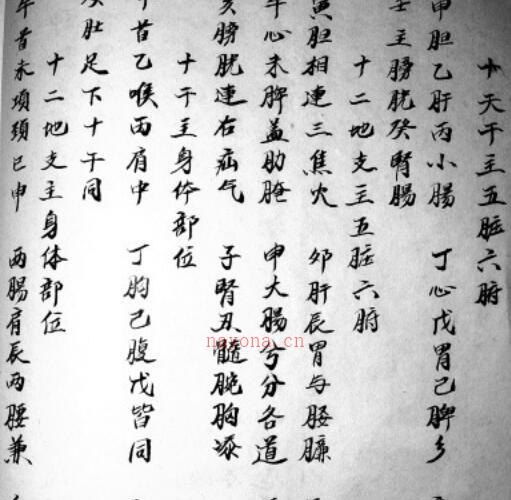 十天干主五脏六腑
甲胆乙肝丙小腸 丁心戊胃己脾乡
壬主膀胱癸腎腸
十二地支主五脏六腑
寅胆相連三焦火 卯肝辰胃与腰
午心未脾益肋腌 申大腸兮分各道
亥膀胱連右疝气 子腎丑髓腕胸
十干主身体部位
甲首乙喉丙肩中 丁胸己腹戊皆同
肚足下十干同
十二地支主身体部位
午首未項頚巳申 两腸肩辰两腰兼
nayona.cn